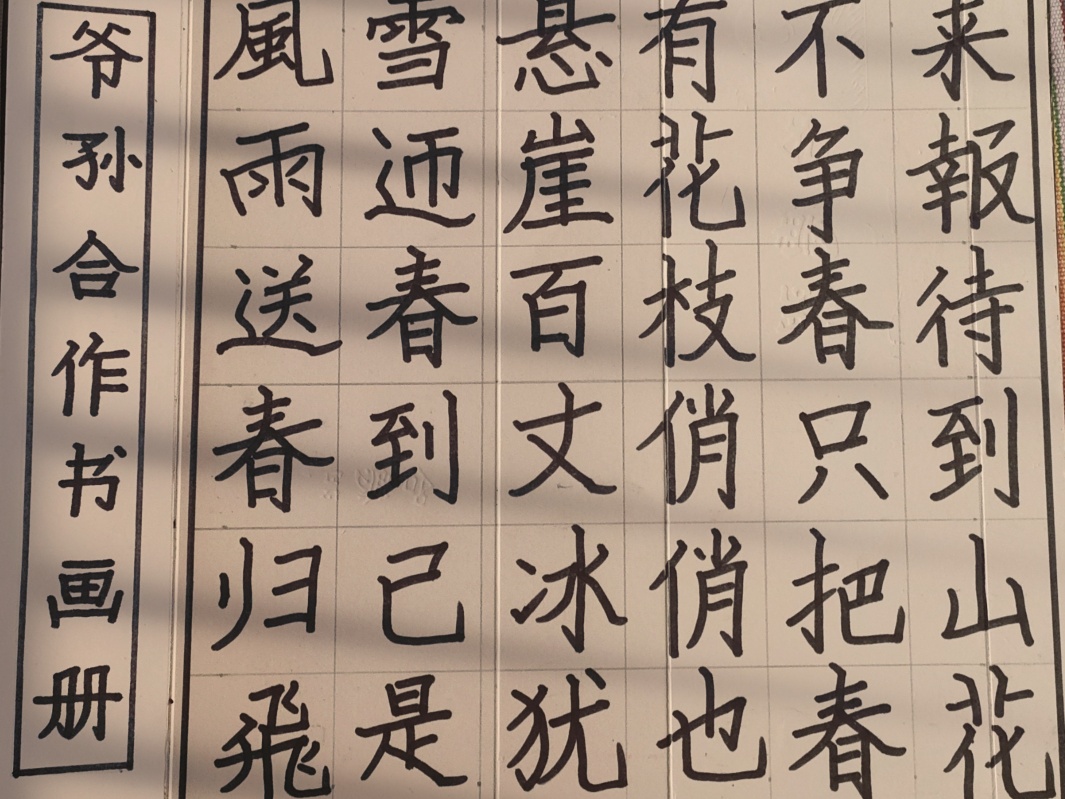 爷孙合作书画册
風雨送春归飛
雪迊春到己是
悬崖百丈冰犹
有花枝俏俏也
不争春只把春
来報待到山花